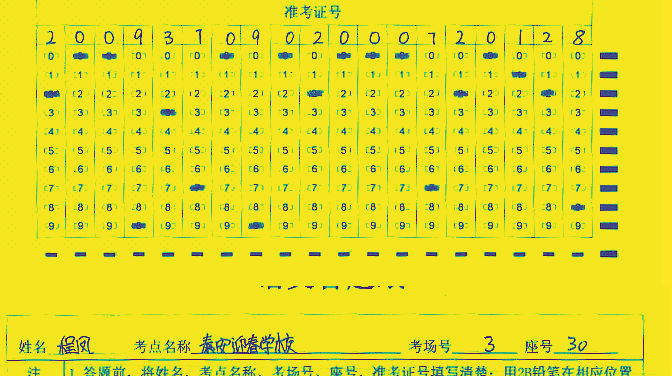 准考证号
2 0 0 9 3 7 0 9 0 2 0 0 0 7 2 0 1 2 8
0 0 0 0 0 0 0 0 0 0 0
1 1 1 1 1 1 1 1 1 1 1 1 1 1 1 1 1 1
2 2 2 2 2 2 2 2 2 2 2 2 2 2 2
3 3 3 3 3 3 3 3 3 3 3 3 3 3 3 3 3 3
4 4 4 4 4 4 4 4 4 4 4 4 4 4 4 4 4 4 4
5 5 5 5 5 5 5 5 5 5 5 5 5 5 5 5 5 5 5
6 6 6 6 6 6 6 6 6 6 6 6 6 6 6 6 6 6 6
7 7 7 7 7 7 7 7 7 7 7 7 7 7 7 7 7
8 8 8 8 8 8 8 8 8 8 8 8 8 8 8 8 8 8
9 9 9 9 9 9 9 9 9 9 9 9 9 9 9 9 9
姓名 程凤 考点名称 泰安迎春学校 考场号 3 座号 30
注 1.答题前，将姓名、考点名称、考场号、座号、准考证号填写清楚；用2B铅笔在相应位置